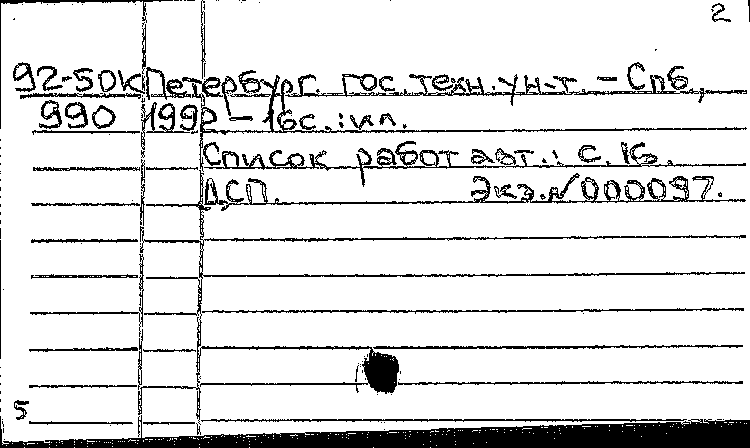 2
92-50К Петербург. гос. техн. ун-т. - Спб,
990 1992. - 16с.: ил.
Список работ авт.: с. 16.
ДСП. Экз. № 000097.
5